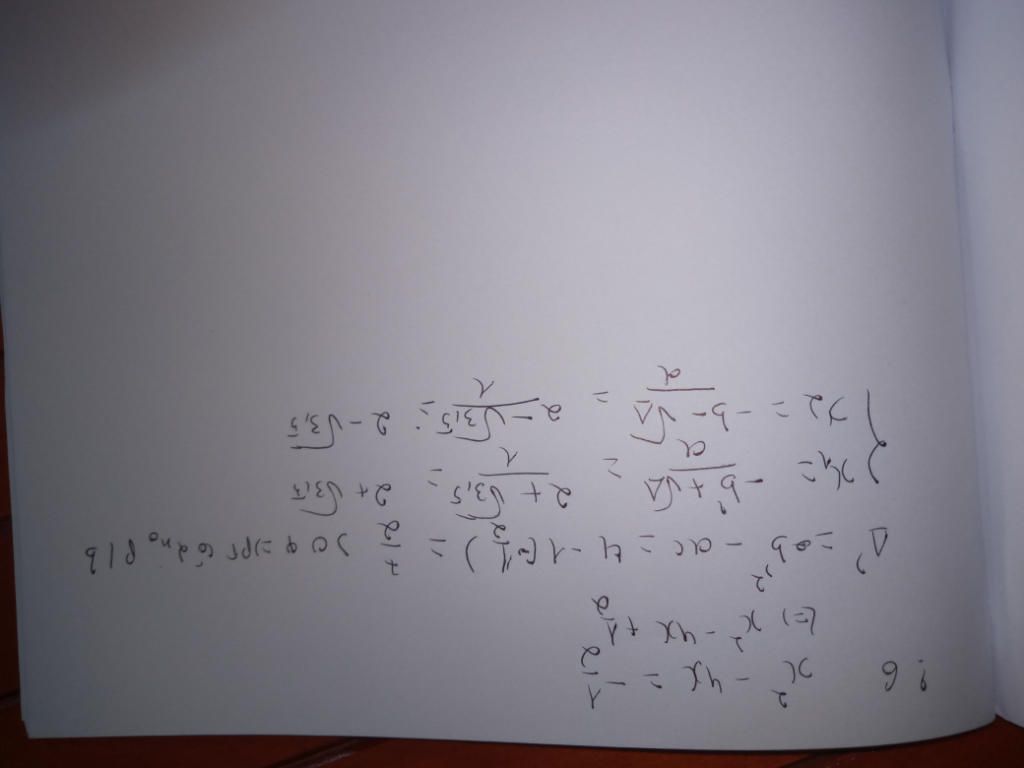 : 6 x² - 4x = -1/2
(=) x² - 4x + 1/2
Δ' = b'² - ac = 4 - 1(1/2) = 7/2 > 0 => pt có 2 no p/b
x1 = -b' + √Δ / a = 2 + √3,5 / 1 = 2 + √3,5
x2 = -b - √Δ / a = 2 - √3,5 / 1 = 2 - √3,5